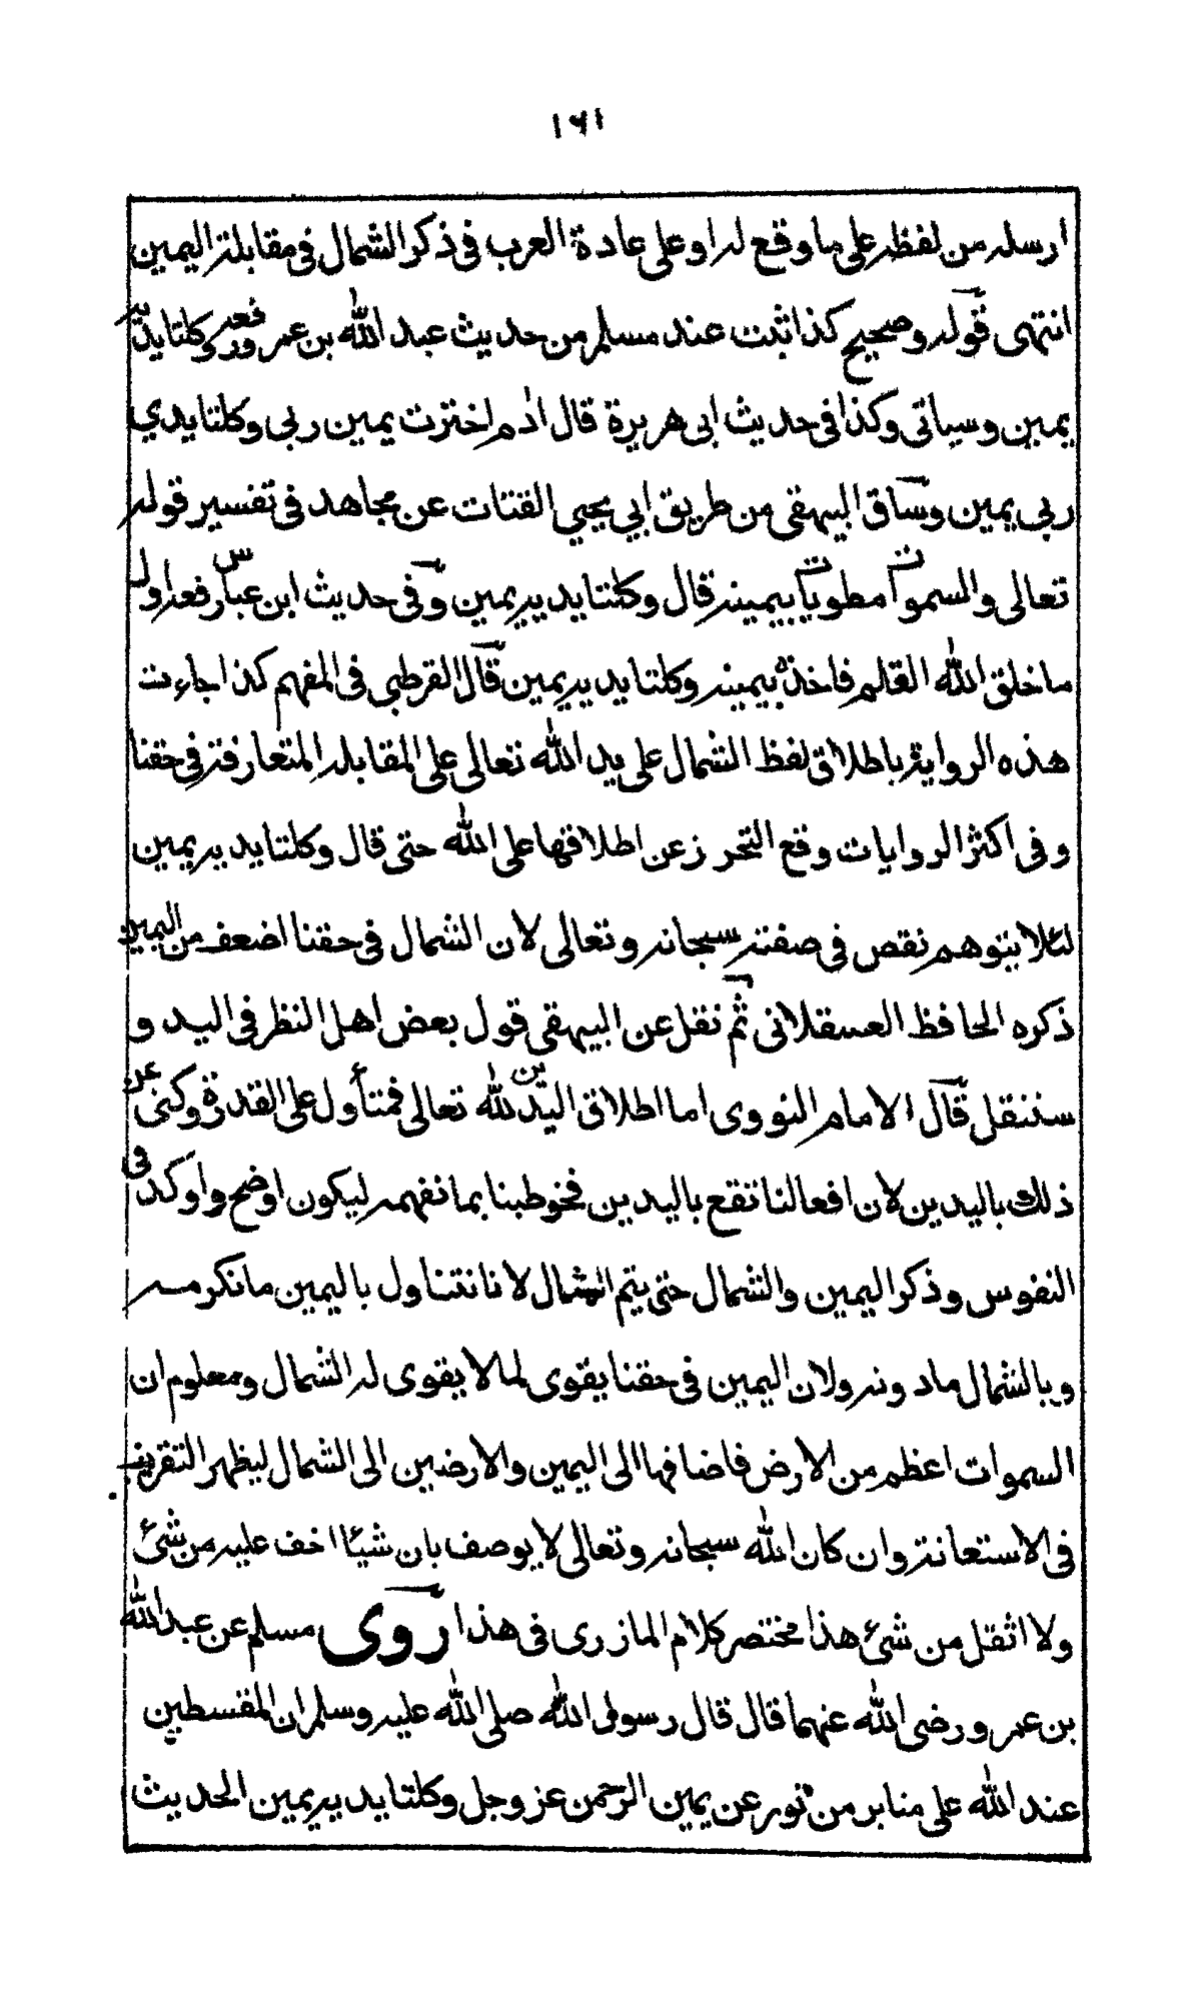 ١٦١
ارسله من لفظه على ما وقع له او على عادة العرب فى ذكر الشمال فى مقابلة اليمين
انتهى قوله وصحيح كذا ثبت عند مسلم من حديث عبد الله بن عمرو رفعه وكلتا يديه
يمين وسياتى وكذا فى حديث ابى هريرة قال ادم اخترت يمين ربى وكلتا يدي
ربى يمين وساق البيهقى من طريق ابي يحيي القتات عن مجاهد فى تفسير قوله
تعالى والسموات مطويات بيمينه قال وكلتا يديه يمين وفى حديث ابن عباس رفعه اول
ما خلق الله القلم فاخذه بيمينه وكلتا يديه يمين قال القرطبى فى المفهم كذا جاءت
هذه الرواية باطلاق لفظ الشمال على يد الله تعالى على المقابلة المتعارفة فى حقنا
وفى اكثر الروايات وقع التحرز عن اطلاقها على الله حتى قال وكلتا يديه يمين
لئلا يتوهم نقص فى صفته سبحانه وتعالى لان الشمال فى حقنا اضعف من اليمين
ذكره الحافظ العسقلانى ثم نقل عن البيهقى قول بعض اهل النظر فى اليد و
سننقل قال الامام النووى اما اطلاق اليدين لله تعالى فمتأول على القدرة وكنى عن
ذلك باليدين لان افعالنا تقع باليدين فخوطبنا بما نفهمه ليكون اوضح واوكد فى
النفوس وذكر اليمين والشمال حتى يتم الشمال لا نا نتناول باليمين ما نكرمه
وبالشمال ما دونه ولان اليمين فى حقنا يقوى لما لا يقوى له الشمال ومعلوم ان
السموات اعظم من الارض فاضافها الى اليمين والارضين الى الشمال ليظهر التقريب
فى الاستعانة وان كان الله سبحانه وتعالى لا يوصف بان شيئا اخف عليه من شئ
ولا اثقل من شئ هذا مختصر كلام المازرى فى هذا روى مسلم عن عبد الله
بن عمرو رضى الله عنهما قال قال رسول الله صلى الله عليه وسلم ان المقسطين
عند الله على منابر من نور عن يمين الرحمن عز وجل وكلتا يديه يمين الحديث